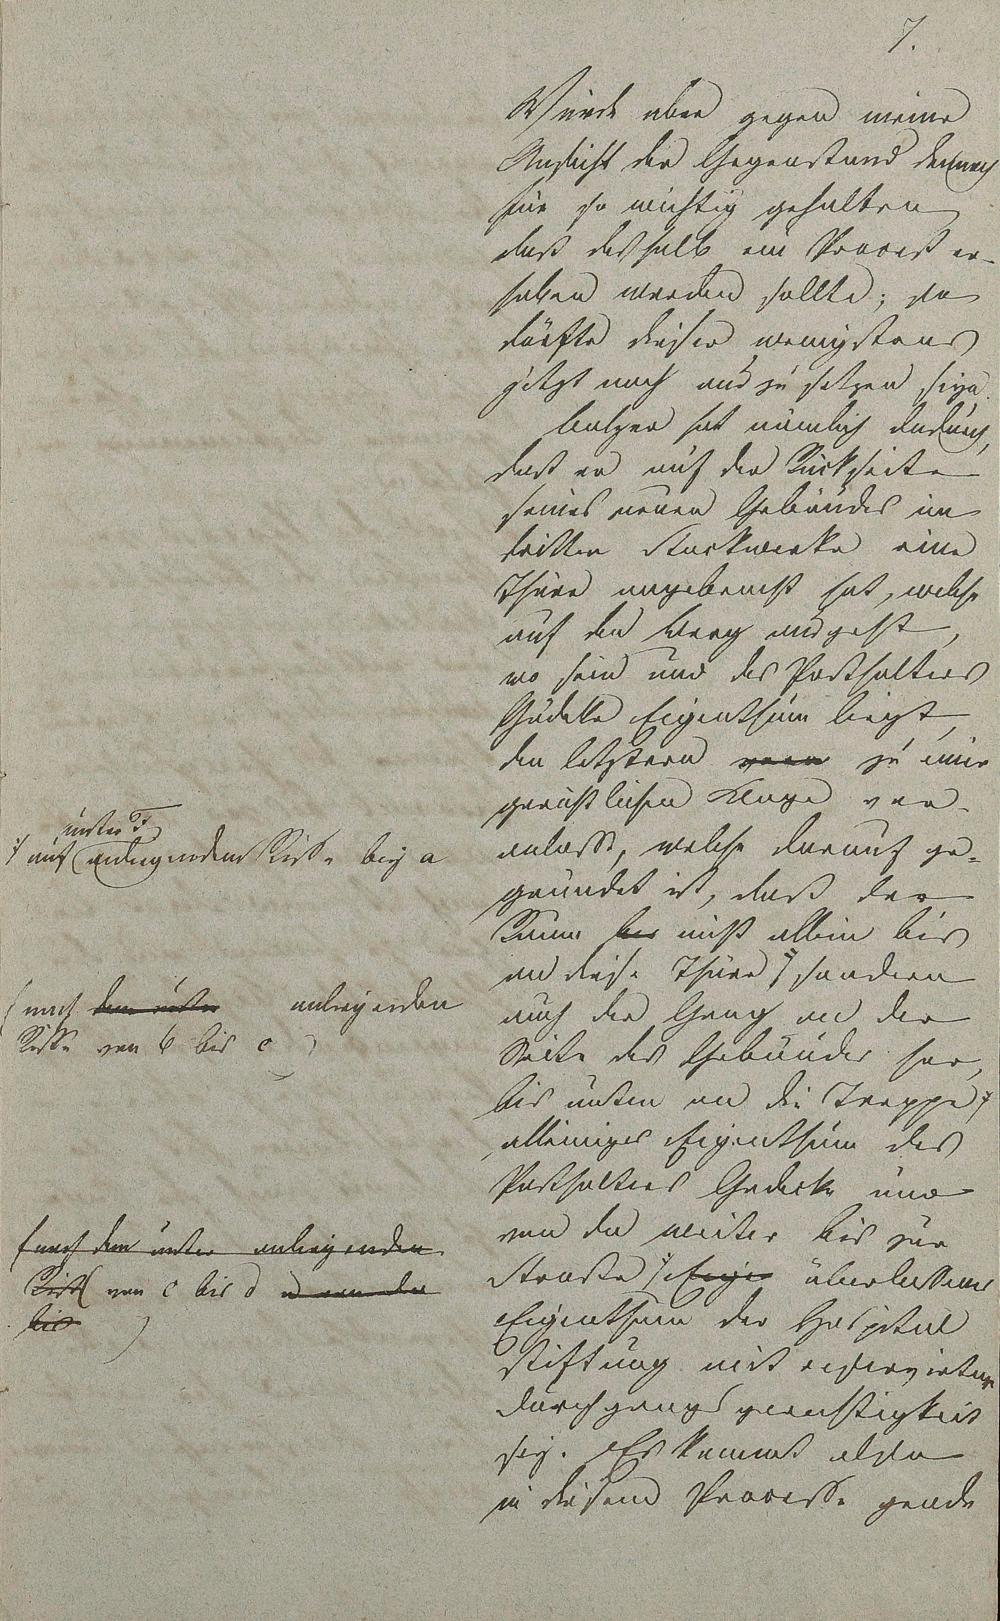 7.
Würde aber gegen meine
Ansicht der Gegenstand dennoch
für so wichtig gehalten
daß deshalb ein Proceß er-
hoben werden sollte; so
dürfte dieser wenigstens
jetzt noch aus zu setzen seyn.
Balzer hat nämlich dadurch,
daß er auf der Rückseite
seines neuen Gebäudes im
dritten Stockwerke eine
Thüre angebracht hat, welche
auf den Berg ausgeht,
wo sein und des Posthalters
Gödeke Eigenthum liegt,
den letztern zu einer
gerichtlichen Klage ver-
anlasst, welche darauf ge-
gründet ist, daß der
Raum bis nicht allein bis
an diese Thüre sondern
auch der Gang an der
Seite des Gebäudes her,
bis unten an die Treppe
alleiniges Eigenthum des
Posthalters Gedeke und
von da weiter bis zur
Straße überlassenes
Eigenthum der Hospital
stiftung mit reservirter
Durchgangsgerechtigkeit
sey. Es kommt also
in diesem Processe gerade
unter
auf anliegendem Risse bey a
(nach dem unter anliegenden
Risse von b bis c)
(nach dem unter anliegenden
Riss (von c bis d u von da
bis )